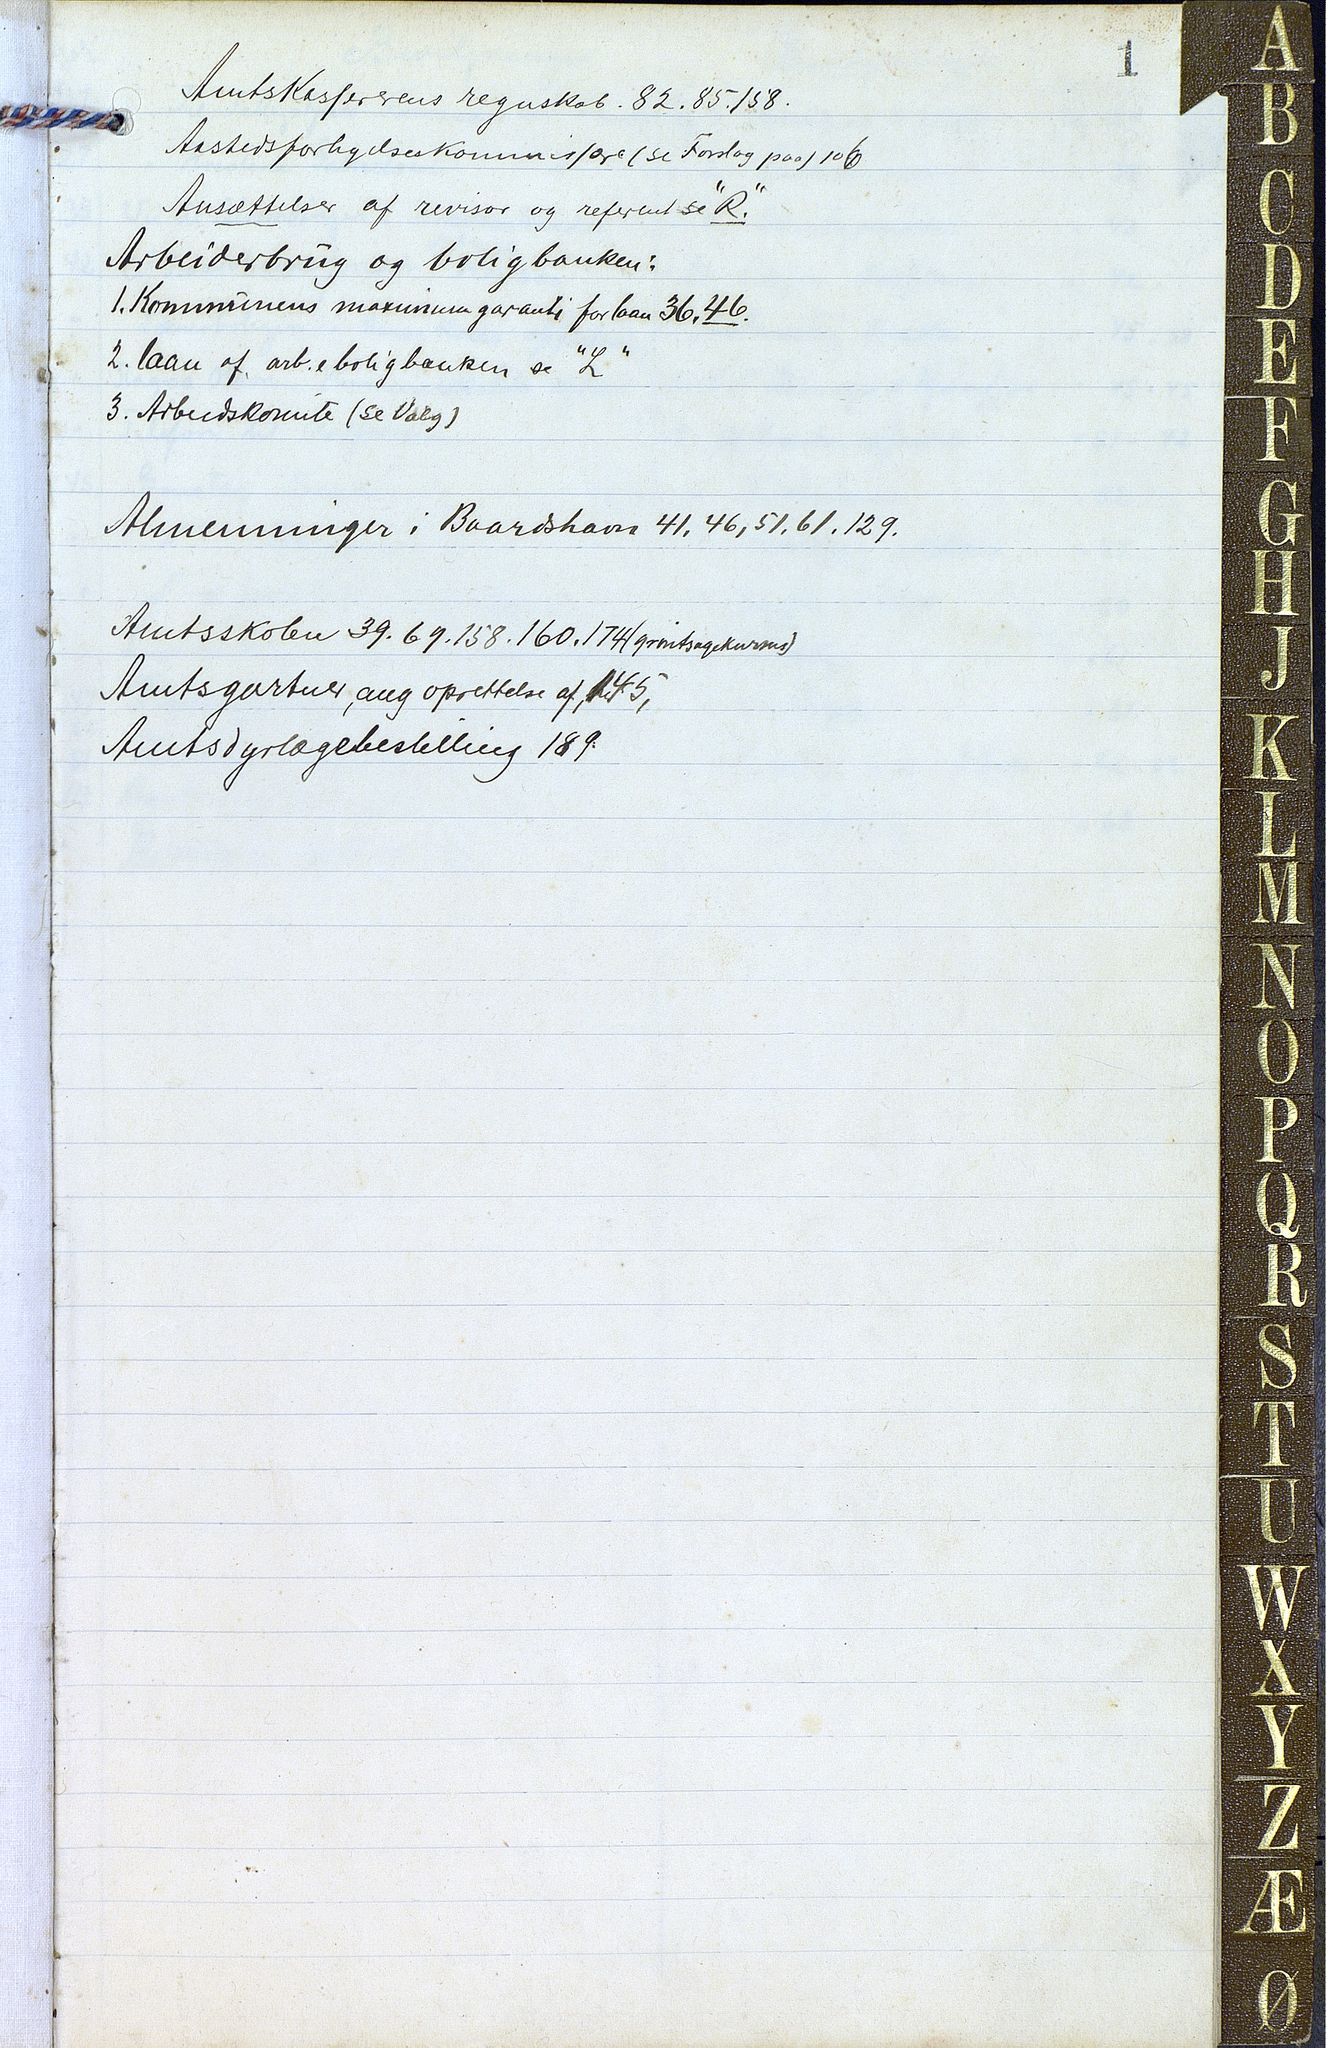 1
Amtskassererens regnskab. 82. 85. 158.
Aastedsforligelseskommissære (se Forslag paa) 106
Ansættelser af revisor og referent se "R."
Arbeiderbrug og boligbanken:
1. Kommunens maximum garanti for laan 36. 46.
2. laan af, arb. e boligbanken se "L"
3. Arbeidskomite (se Valg)
Almenninger i Baardshavn 41. 46, 51. 61. 129.
Amtsskolen 39. 69. 158. 160. 174 (grøntsagekursus)
Amtsgartner, ang oprettelse af, 145,
Amtsdyrlægebestilling 189.
A
B
C
D
E
F
G
H
J
K
L
M
N
O
P
Q
R
S
T
U
W
X
Y
Z
Æ
Ø